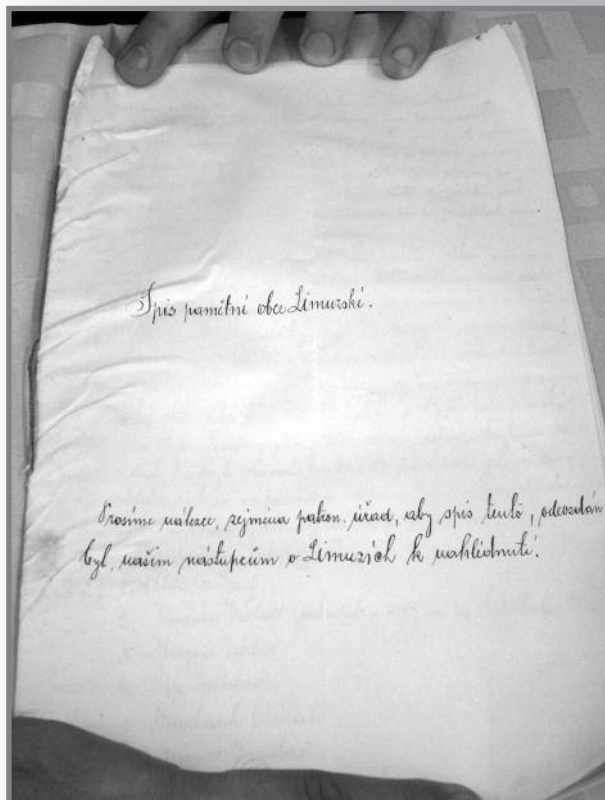 Spis pamětní obce Limuzské.
Prosíme nálezce, zejména patron. úřad, aby spis tento, odevzdán
byl, našim nástupcům v Limuzích k nahlédnutí.